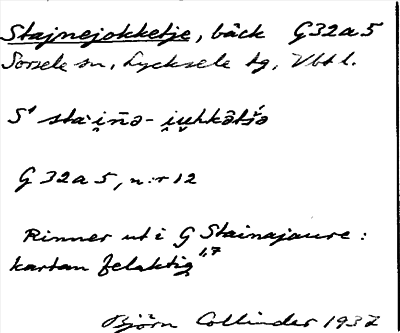 Stajnejokketje, bäck G32a5
Sorsele sn, Lycksele tg, Vbtl.
G 32a5, n:r 12
Rinner ut i G Stainajaure:
kartan felaktig
Björn Collinder 1937